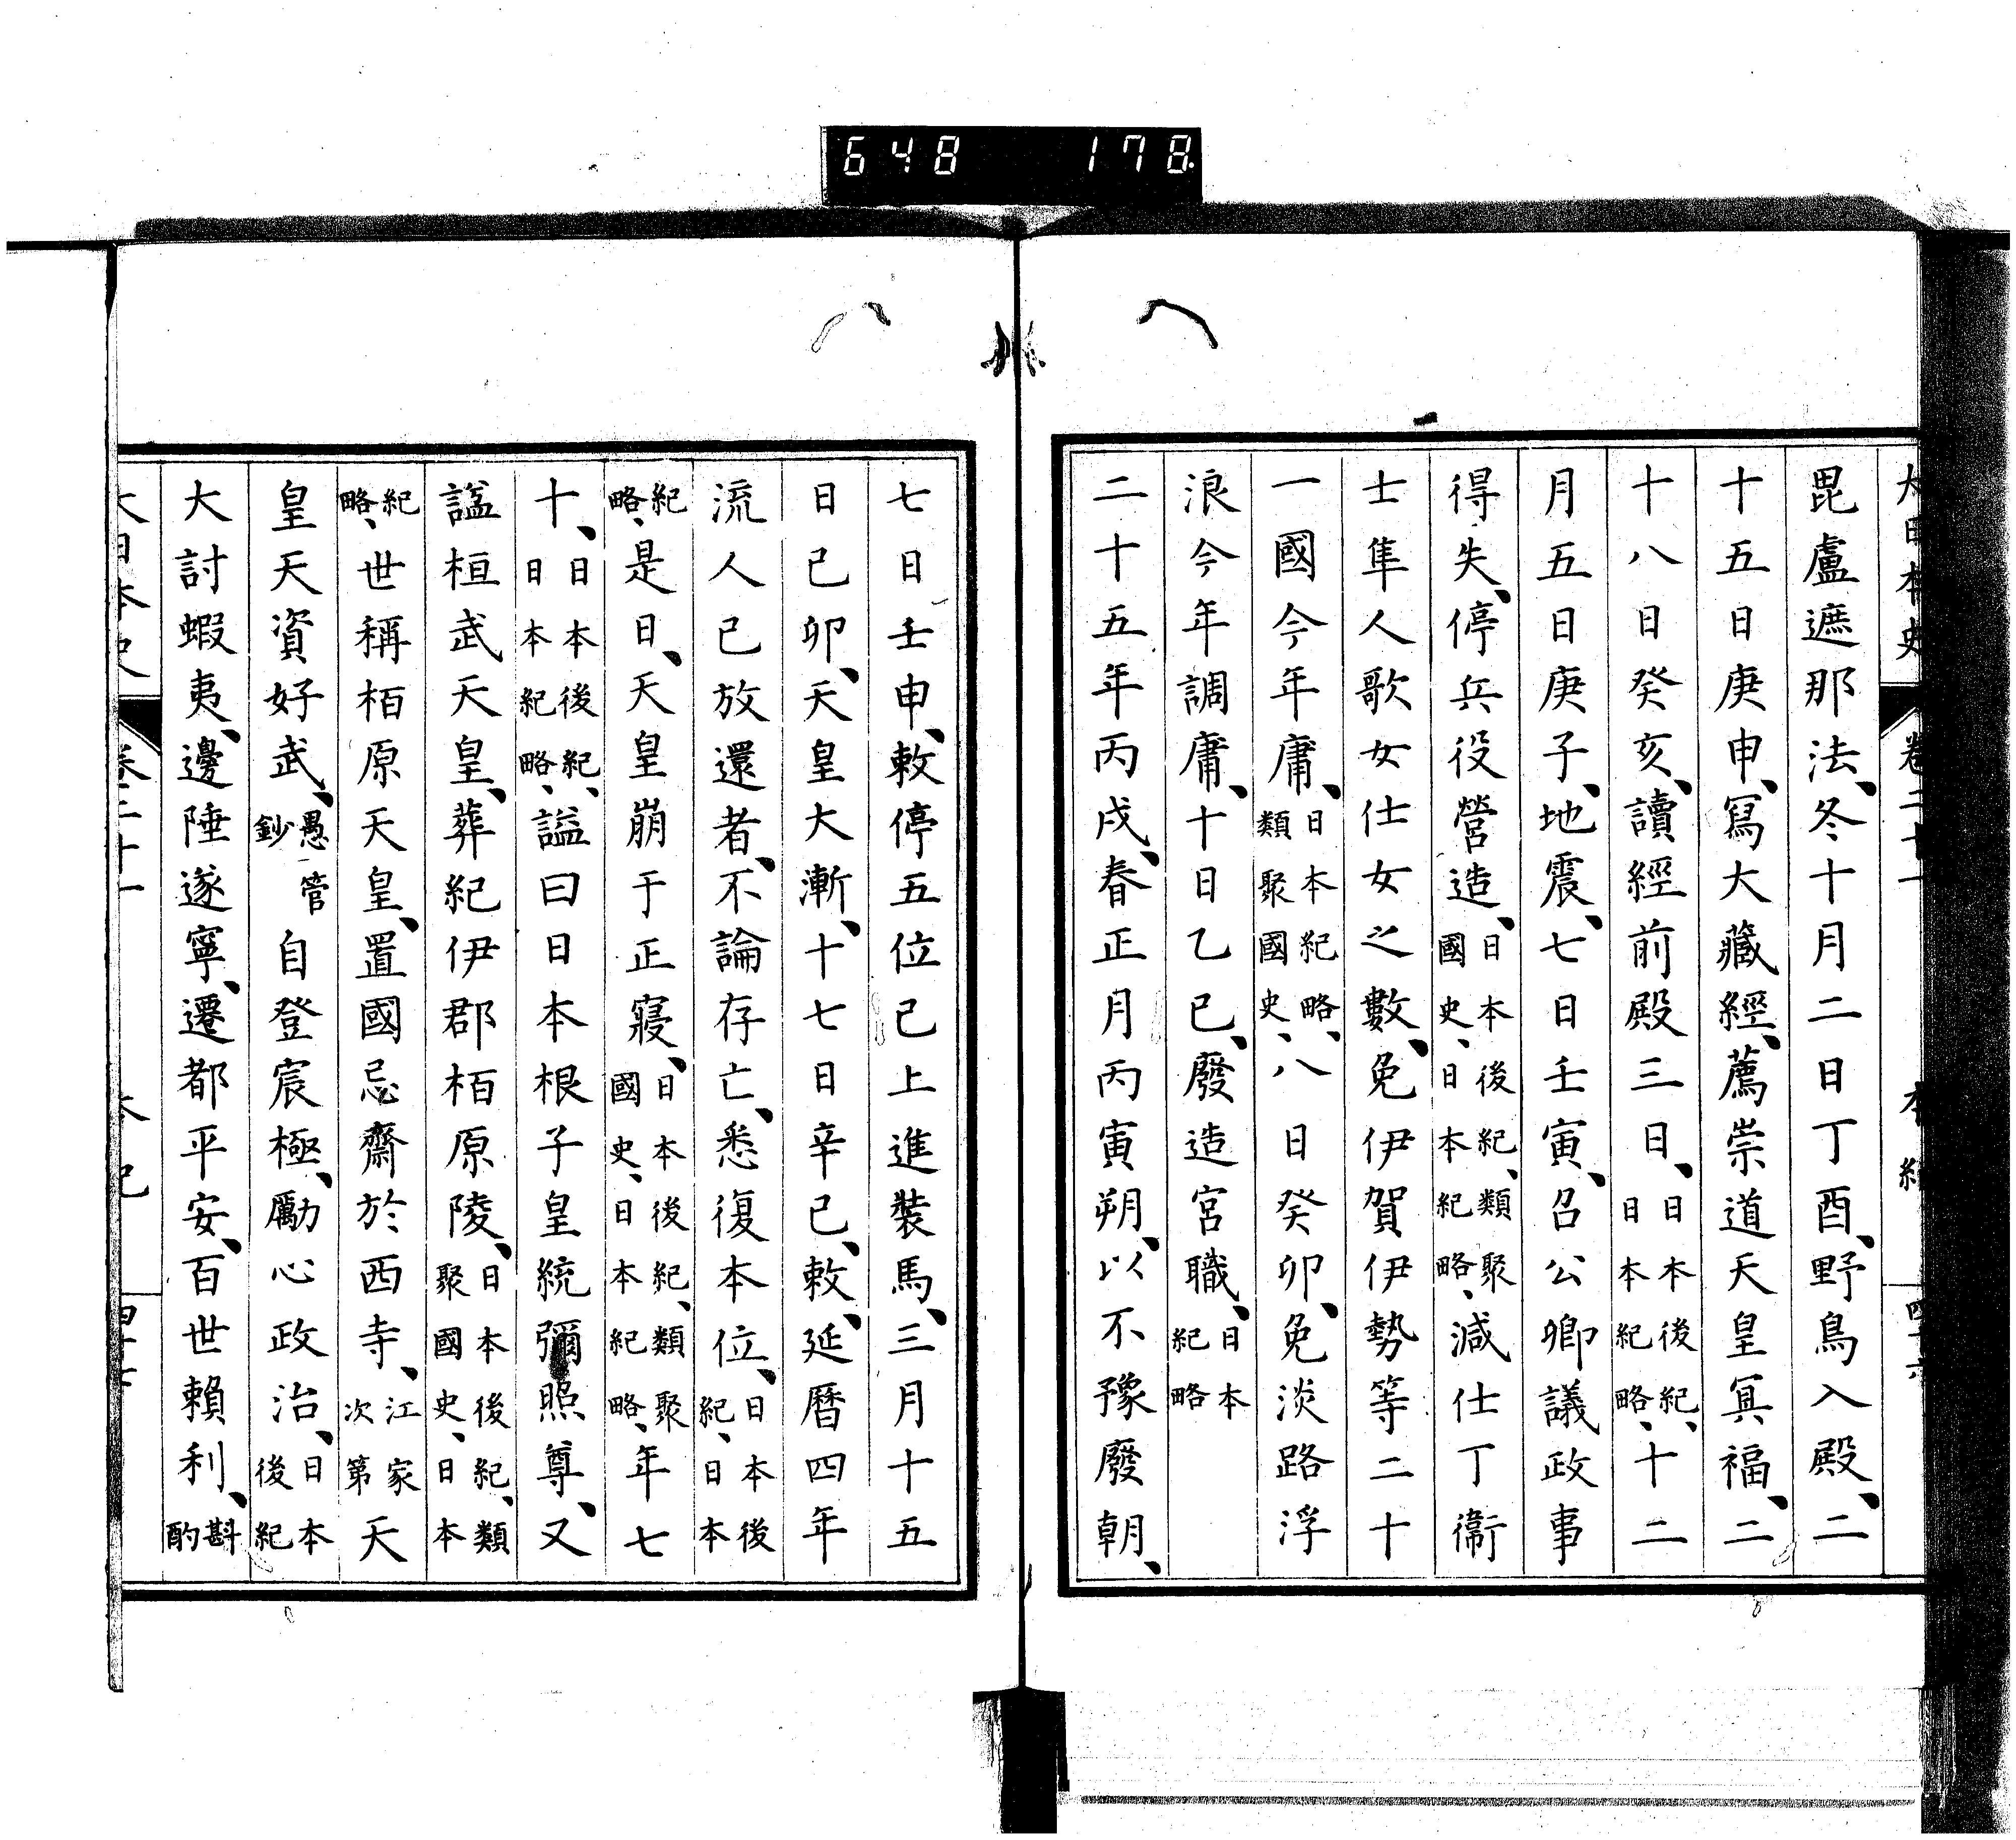 648 178
大日本史 卷二十一 本紀 四十六
毘盧遮那法、冬十月二日丁酉、野鳥入殿、二
十五日庚申、寫大藏經、薦崇道天皇冥福、二
十八日癸亥、讀經前殿三日、日本後紀、日本紀略、十二
月五日庚子、地震、七日壬寅、召公卿議政事
得失、停兵役營造、日本後紀、類聚國史、日本紀略、減仕丁衞
士隼人歌女仕女之數、免伊賀伊勢等二十
一國今年庸、日本紀略、類聚國史、八日癸卯、免淡路浮
浪今年調庸、十日乙巳、廢造宮職、日本紀略
二十五年丙戌、春正月丙寅朔、以不豫廢朝、
七日壬申、敕停五位已上進裝馬、三月十五
日己卯、天皇大漸、十七日辛巳、敕、延曆四年
流人已放還者、不論存亡、悉復本位、日本後紀、日本
紀略、是日、天皇崩于正寢、日本後紀、類聚國史、日本紀略、年七
十、日本後紀、日本紀略、謚曰日本根子皇統彌照尊、又
謚桓武天皇、葬紀伊郡柏原陵、日本後紀、類聚國史、日本
紀略、世稱柏原天皇、置國忌齋於西寺、江家次第天
皇天資好武、愚管鈔自登宸極、勵心政治、日本後紀
大討蝦夷、邊陲遂寧、遷都平安、百世賴利、斟酌
大日本史 卷二十一 本紀 四十七